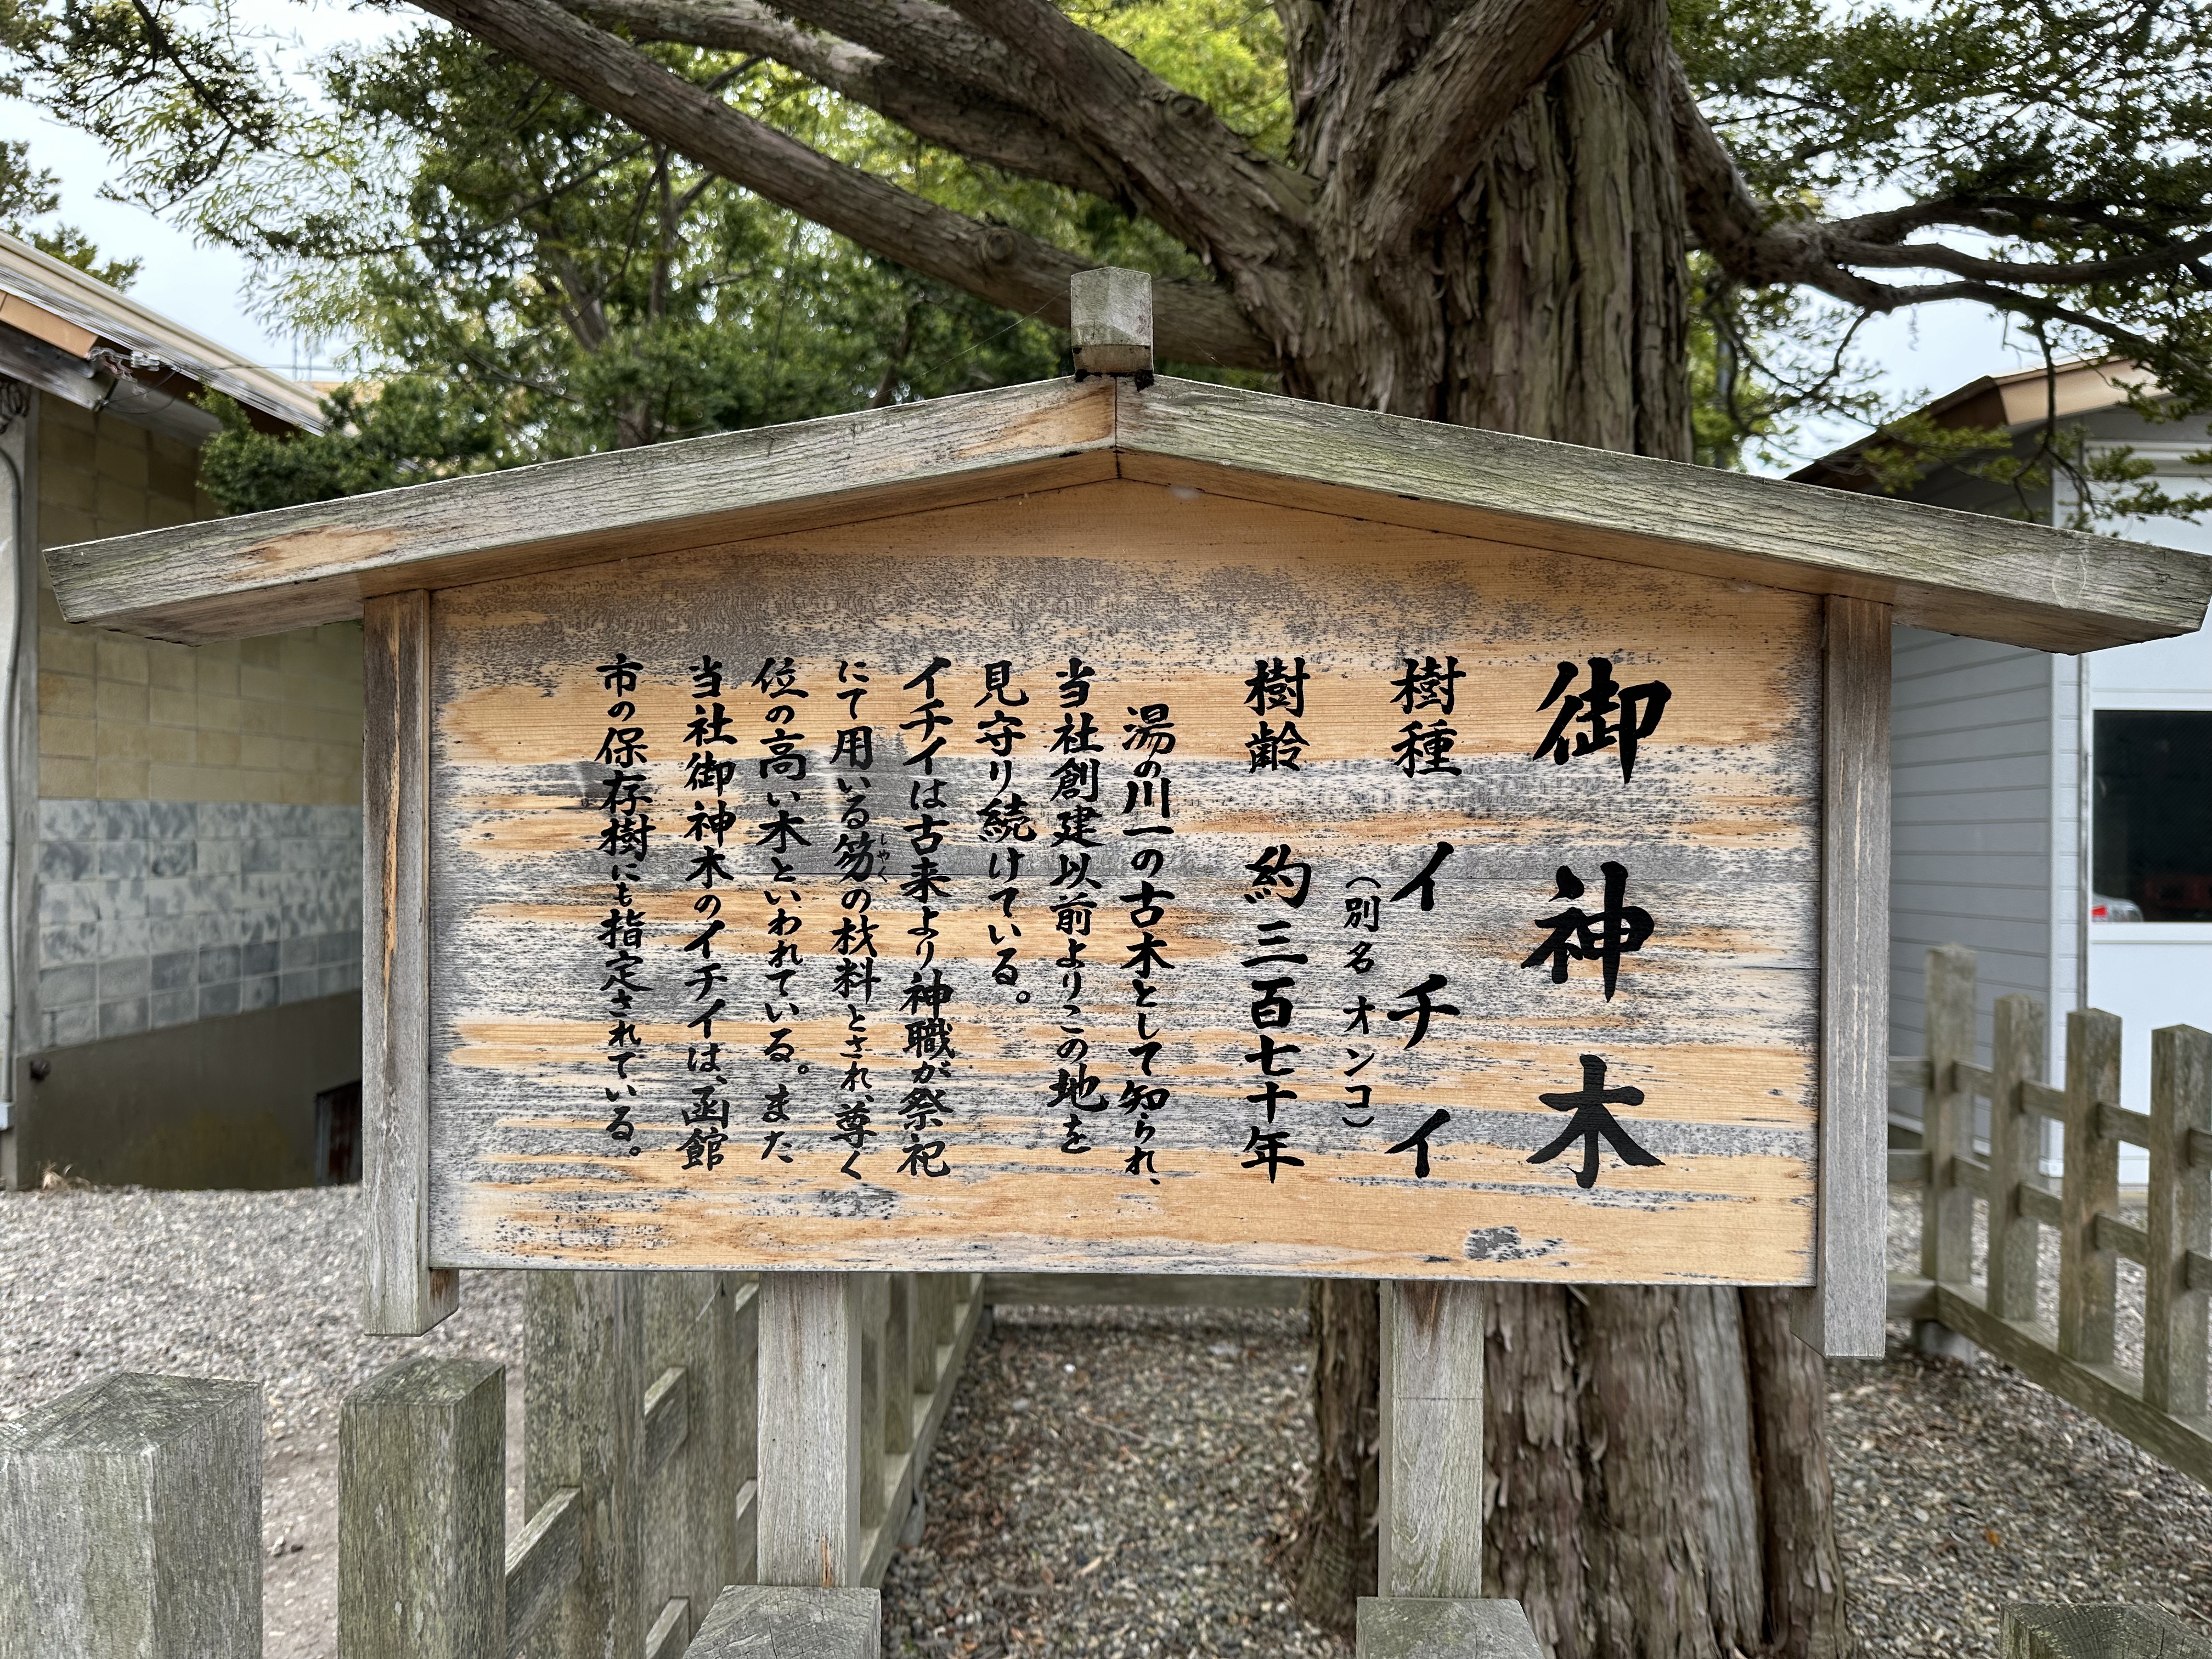 御神木
樹種 イチイ
（別名 オンコ）
樹齢 約三百七十年
湯の川一の古木として知られ、
当社創建以前よりこの地を
見守り続けている。
イチイは古来より神職が祭祀
にて用いる笏の材料とされ、尊く
しゃく
位の高い木といわれている。また
当社御神木のイチイは、函館
市の保存樹にも指定されている。